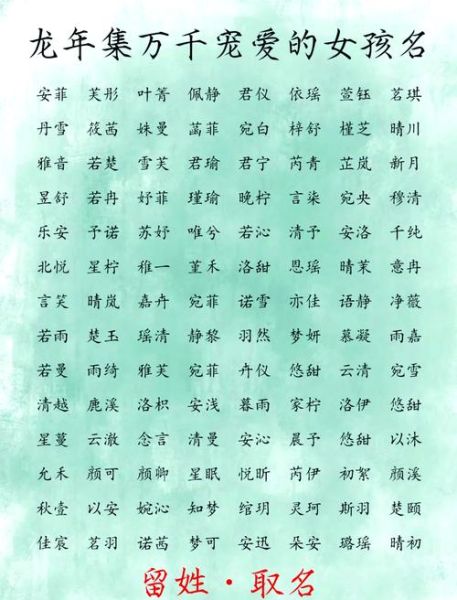 龙年集万千宠爱的女孩名
安菲 芙彤 叶菁 佩静 君仪 依瑶 萱钰 茗琪
丹雪 筱茜 姝曼 菡菲 宛白 梓舒 槿芝 晴川
雅音 若楚 雪芙 君瑜 君宁 芮青 芷岚 新月
昱舒 若冉 妤菲 瑾瑜 晚柠 言柒 宛央 穆清
乐安 予诺 苏妤 唯兮 若沁 清予 安洛 千纯
北悦 星柠 稚一 堇禾 洛甜 恩瑶 晴茉 意冉
言笑 晴岚 嘉卉 宛菲 诺雪 亦佳 语静 净薇
若雨 楚玉 瑶清 静黎 羽然 梦妍 慕凝 雨嘉
若曼 雨绮 雅芙 宛菲 卉仪 悠甜 云清 宛雪
清越 鹿溪 洛枳 安浅 暮雨 家柠 洛伊 悠甜
星蔓 云澈 念言 清曼 安沁 晨予 悠甜 以沐
允禾 颜可 颜卿 星眠 悦昕 芮伊 初絮 颜溪
秋壹 以安 婉沁 知梦 绾玥 灵珂 斯羽 楚颐
佳宸 茗羽 诺茜 梦可 安迅 朵安 璐瑶 晴初
留姓·取名